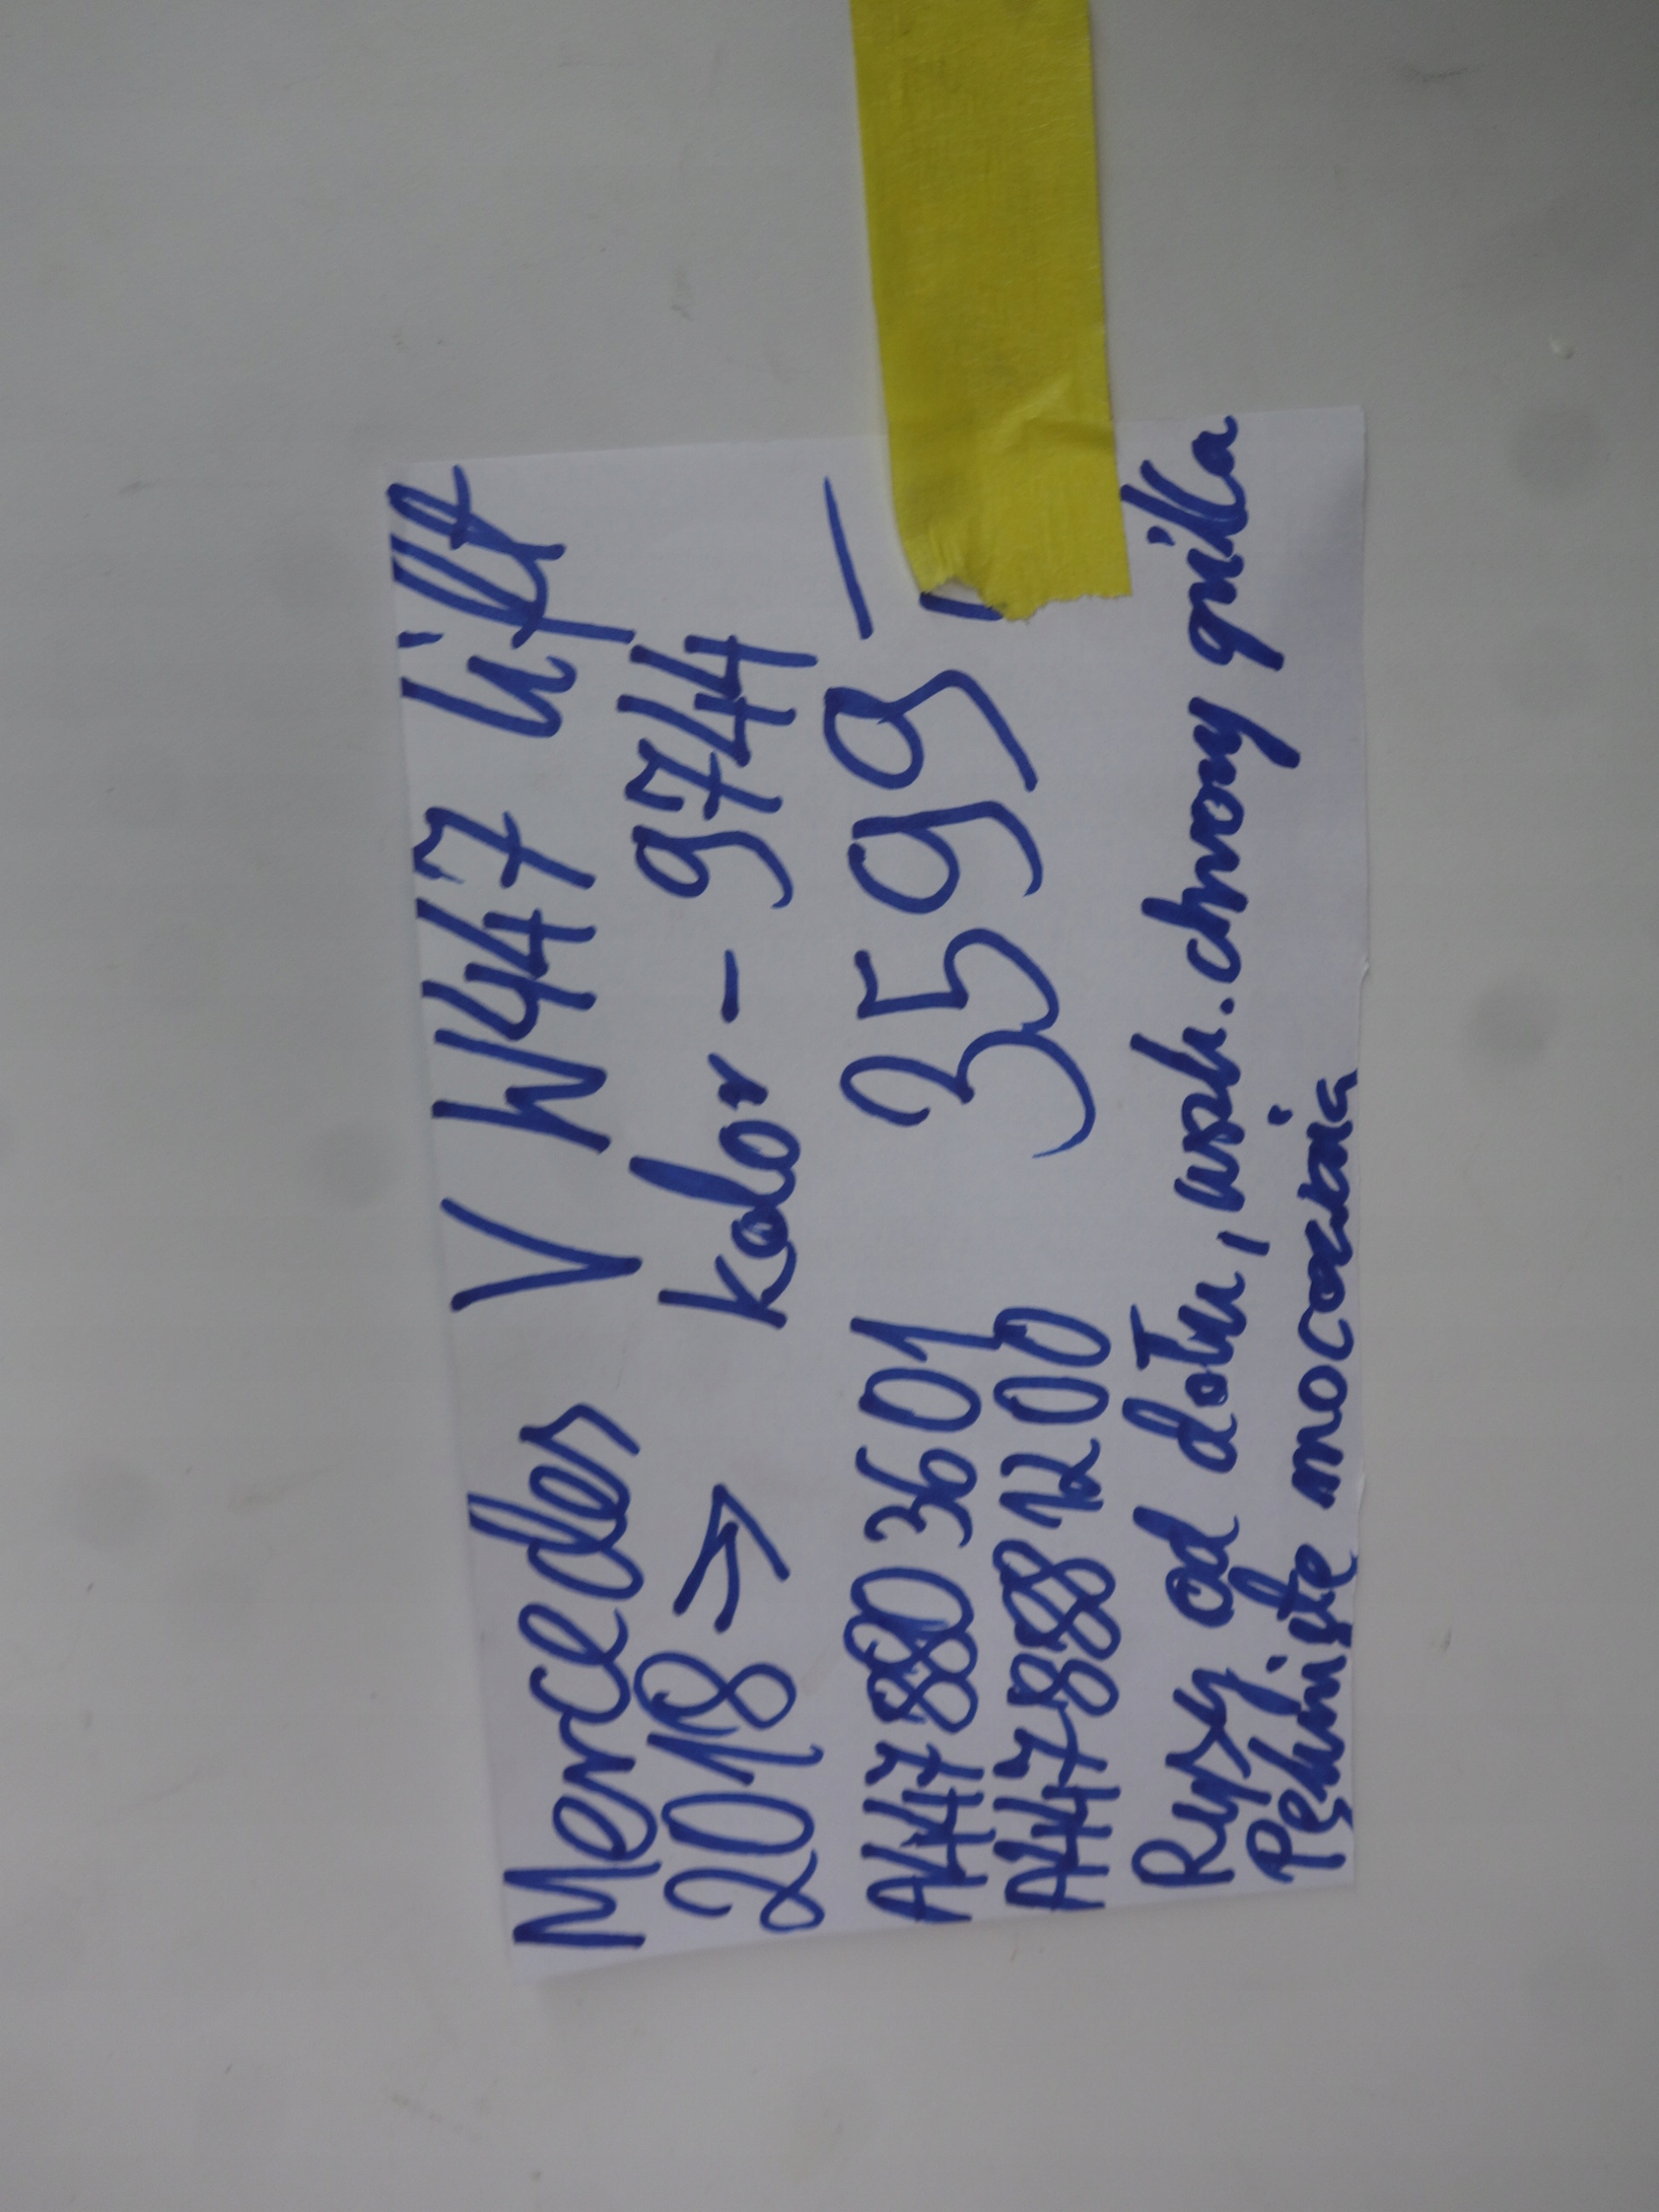 Mercedes V W447 lift
2018 → kolor - 9744
A447 880 3601 3599 -
A447 888 1200
Rysy od dołu, uszk. chromy grilla
Pęknięte mocowania